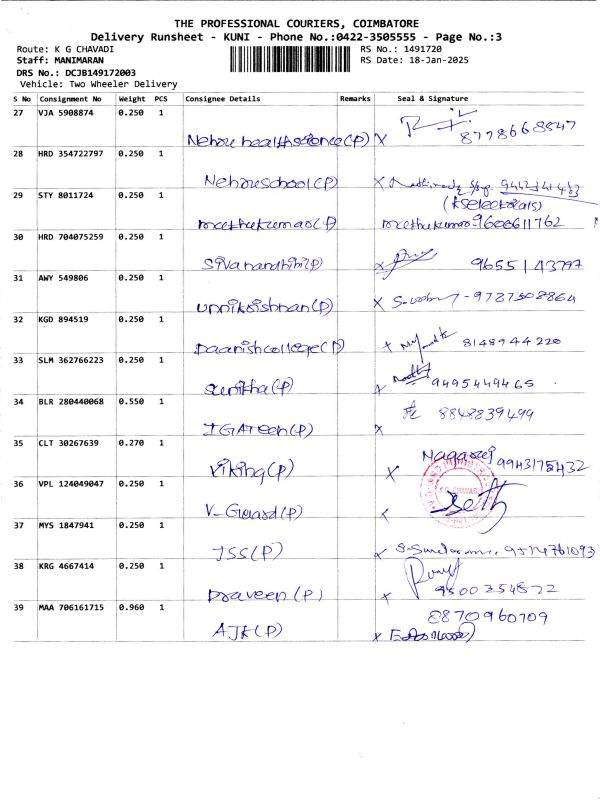 THE PROFESSIONAL COURIERS, COIMBATORE
Delivery Runsheet - KUNI - Phone No.:0422-3505555 - Page No.:3
Route: K G CHAVADI RS No.: 1491720
Staff: MANIMARAN RS Date: 18-Jan-2025
DRS No.: DCJB149172003
Vehicle: Two Wheeler Delivery
S No Consignment No Weight PCS Consignee Details Remarks Seal & Signature
27 VJA 5908874 0.250 1
Nehru health science (P) X 8778668547
28 HRD 354722797 0.250 1
Nehru school (P) X
29 STY 8011724 0.250 1
muthukumar (P) muthukumar 9600611762
30 HRD 704075259 0.250 1
Sivanandhini (P) X 9655143797
31 AWY 549806 0.250 1
unnikrishnan (P) X 9787508864
32 KGD 894519 0.250 1
Daanish college (P) 8148944220
33 SLM 362766223 0.250 1
Sunitha (P) 9495449465
34 BLR 280440068 0.550 1
8848839499
IGATeen (P) X
35 CLT 30267639 0.270 1
Viking (P) X Nagaraj 9943175432
36 VPL 124049047 0.250 1
V-Guard (P) X
37 MYS 1847941 0.250 1
JSS (P)
38 KRG 4667414 0.250 1
Praveen (P) X 9500354822
39 MAA 706161715 0.960 1
8870960709
AJK (P) X